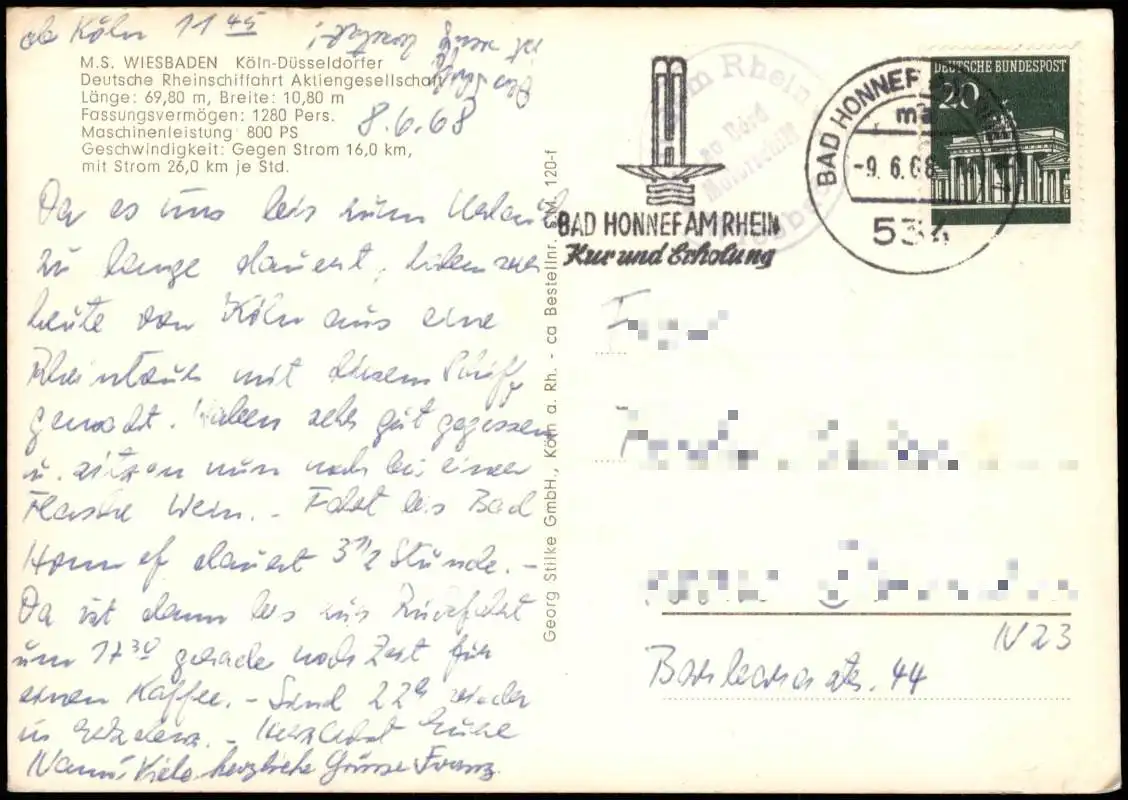 ab Köln 11 45
M.S. WIESBADEN Köln-Düsseldorfer
Deutsche Rheinschiffahrt Aktiengesellschaft
Länge: 69,80 m, Breite: 10,80 m
Fassungsvermögen: 1280 Pers.
Maschinenleistung 800 PS
Geschwindigkeit: Gegen Strom 16,0 km,
mit Strom 26,0 km je Std.
8.6.68
Da es uns bis zum Urlaub
zu lange dauert, haben wir
heute von Köln aus eine
Rheintour mit diesem Schiff
gemacht. Haben sehr gut gegessen
u. sitzen nun noch bei einer
Flasche Wein. - Fahrt bis Bad
Honnef dauert 3 1/2 Stunde. -
Da ist dann bis zur Rückfahrt
um 17 30 gerade noch Zeit für
einen Kaffee. - Sind 22h wieder
in. - Herzlichst Eure
Nanni Viele herzliche Grüsse Franz.
Georg Stilke GmbH., Köln a. Rh. - ca Bestellnr. SM. 120-f
am Rhein
zu Bord
Motorschiff
BAD HONNEF AM RHEIN
Kur und Erholung
BAD HONNEF
-9.6.68
534
DEUTSCHE BUNDESPOST
20
IV 23
44